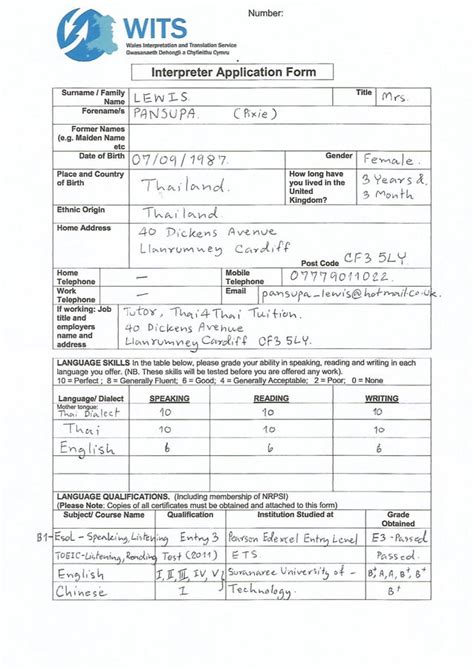 Number:
WITS
Wales Interpretation and Translation Service
Gwasanaeth Dehongli a Chyfieithu Cymru
Interpreter Application Form
Surname / Family Name LEWIS Title Mrs.
Forename/s PANSUPA (Pixie)
Former Names
(e.g. Maiden Name
etc
Date of Birth 07/09/1987. Gender Female.
Place and Country of Birth Thailand. How long have you lived in the United Kingdom? 3 Years & 3 Month
Ethnic Origin Thailand.
Home Address 40 Dickens Avenue
Llanrumney Cardiff
Post Code CF3 5LY
Home Telephone – Mobile Telephone 07779011022.
Work Telephone – Email pansupa_lewis@hotmail.co.uk.
If working: Job title and employers name and address Tutor, Thai4Thai Tuition.
40 Dickens Avenue
Llanrumney Cardiff CF3 5LY.
LANGUAGE SKILLS In the table below, please grade your ability in speaking, reading and writing in each
language you offer. (NB. These skills will be tested before you are offered any work).
10 = Perfect ; 8 = Generally Fluent; 6 = Good; 4 = Generally Acceptable; 2 = Poor; 0 = None
Language/ Dialect SPEAKING READING WRITING
Mother tongue:
Thai Dialect 10 10 10
Thai 10 10 10
English 6 6 6
LANGUAGE QUALIFICATIONS. (Including membership of NRPSI)
(Please Note: Copies of all certificates must be obtained and attached to this form)
Subject/ Course Name Qualification Institution Studied at Grade Obtained
B1-Esol - Speaking, Listening Entry 3 Pearson Edexcel Entry Level E3 - Passed
TOEIC-Listening, Reading Test (2011) ETS Passed.
English I, II, III, IV, V Suranaree University of - B+, A, A, B+, B+
Chinese I Technology. B+